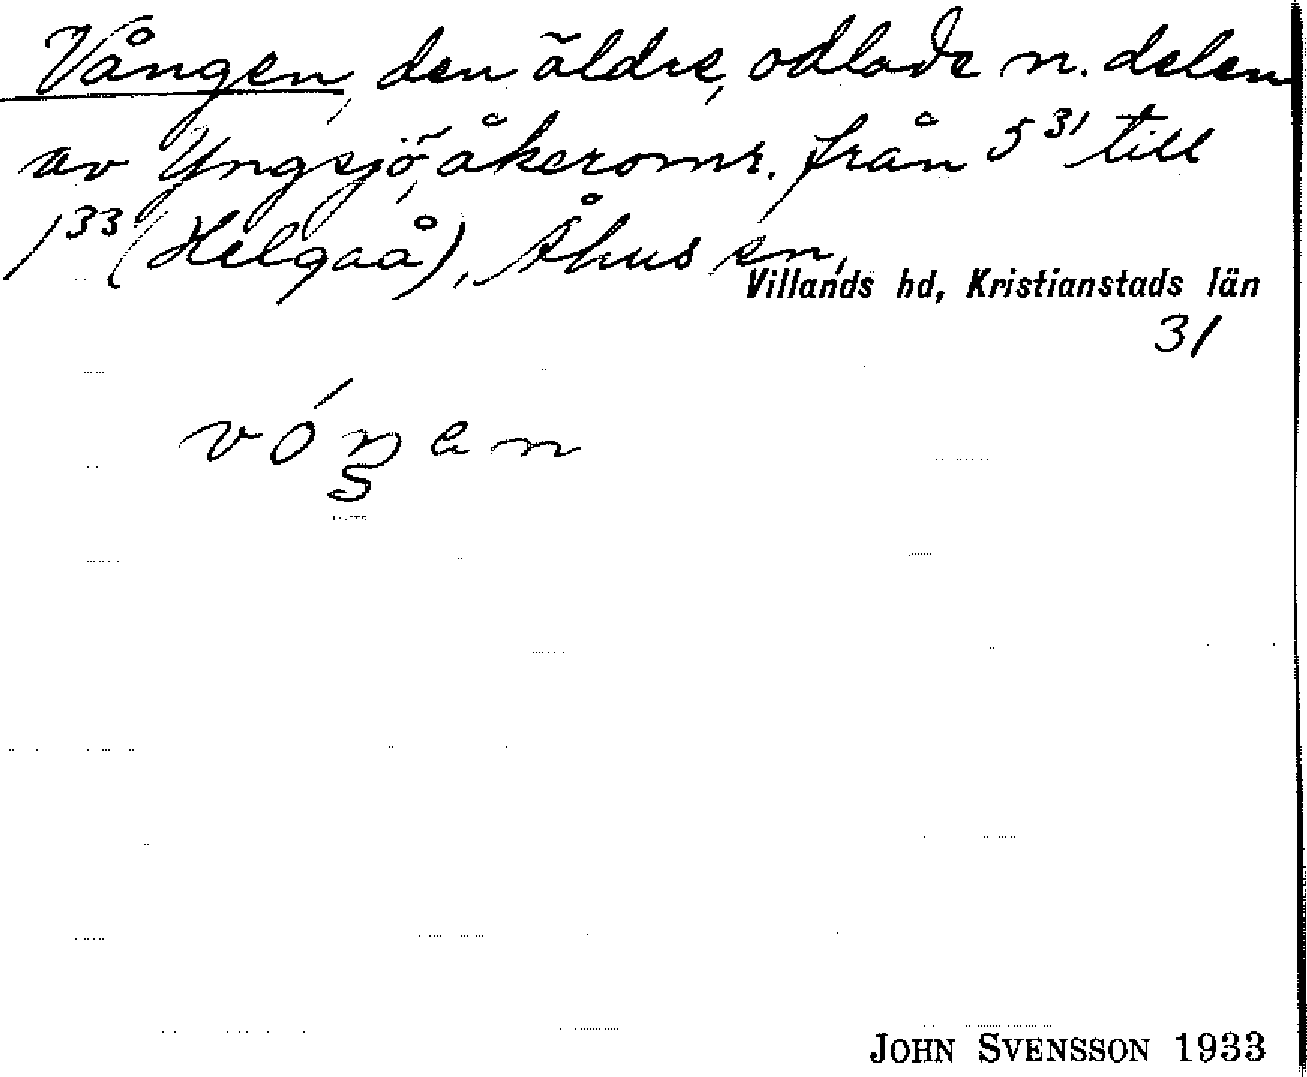 Vången, den äldre, odlade n. delen
av Yngsjö, åkeromr. från 5³¹ till
1³³ (Helgaå), Åhus sn,
Villands hd, Kristianstads län
31
vóŋen
JOHN SVENSSON 1933